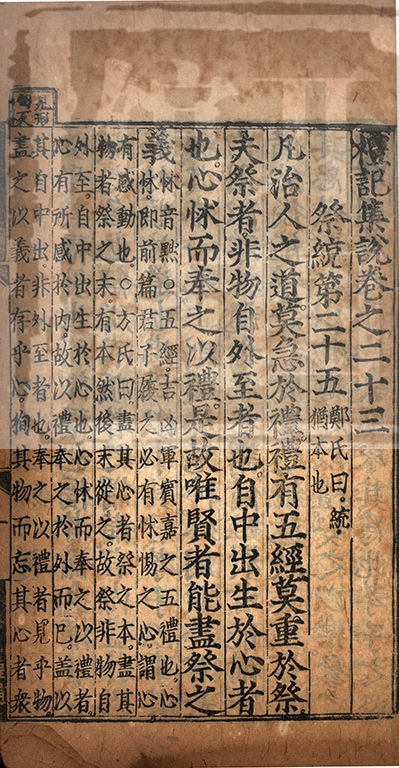 禮記集說卷之二十三
祭統第二十五
鄭氏曰。統。
猶本也
凡治人之道。莫急於禮。禮有五經。莫重於祭。
夫祭者。非物自外至者也。自中出生於心者
也。心怵而奉之以禮。是故唯賢者能盡祭之
義
怵音黜。○五經。吉凶軍賓嘉之五禮也。心
怵。即前篇君子履之必有怵惕之心。謂心
有感動也。○方氏曰。盡其心者祭之本。盡其
物者祭之末。有本然後末從之。故祭非物自
外至。自中出生於心也。心怵而奉之以禮者
心有所感於內。故以禮奉之於外而已。蓋以
其自中出。非外至者也。奉之以禮者見乎物。
盡之以義者存乎心。狥其物而忘其心者衆